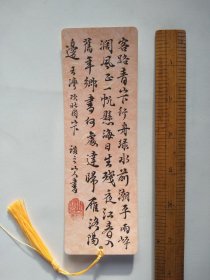 客路青山下行舟綠水前潮平兩岸
闊風正一帆懸海日生殘夜江春入
舊年鄉書何處達歸雁洛陽
邊 王灣次北固山下 書